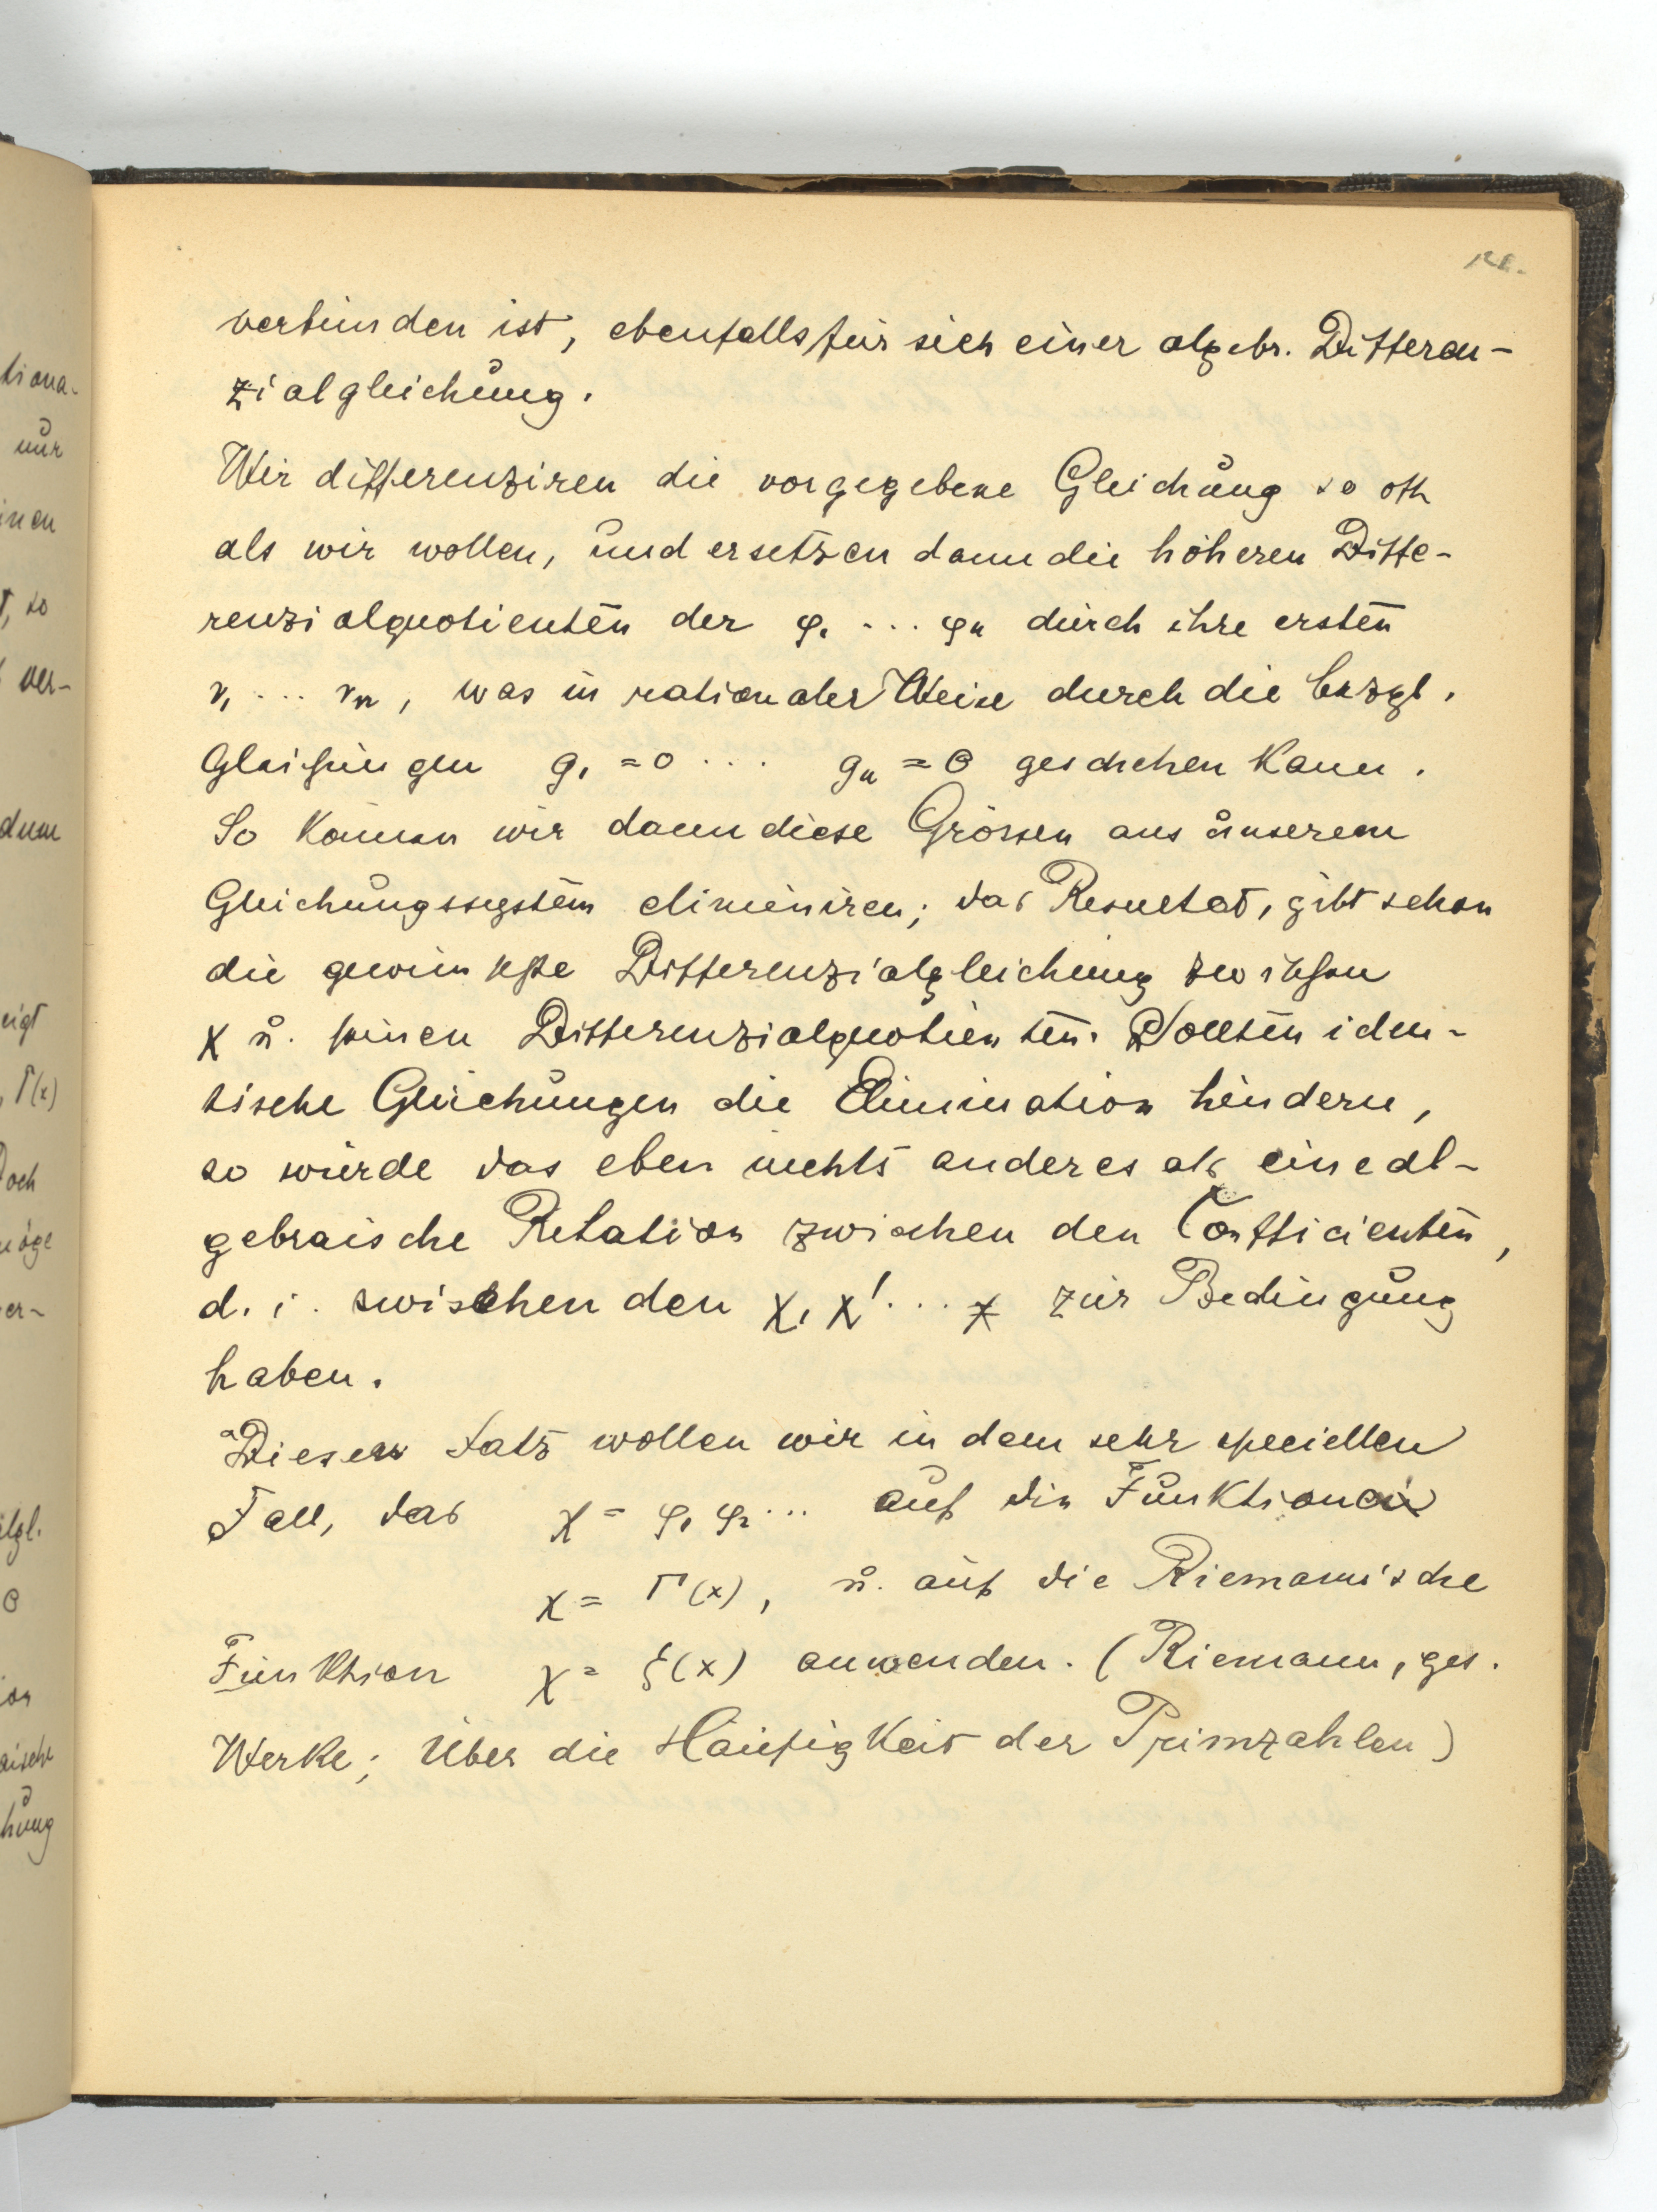 verbunden ist, ebenfalls für sich einer algebr. Differen-
zialgleichung.
Wir differenziren die vorgegebene Gleichung so oft
als wir wollen, und ersetzen dann die höheren Diffe-
renzialquotienten der φ₁ ... φn durch ihre ersten
r₁ ... rn, was in rationaler Weise durch die bezgl.
Gleichungen g₁ = 0 ... gn = 0 geschehen kann.
So können wir dann diese Grössen aus unserem
Gleichungssystem eliminiren; das Resultat, gibt schon
die gewünschte Differenzialgleichung zwischen
χ u. seinen Differenzialquotienten. Sollten iden-
tische Gleichungen die Elimination hindern,
so würde das eben nichts anderes als eine al-
gebraische Relation zwischen den Coefficienten,
d. i. zwischen den χ, χ' ... χ zur Bedingung
haben.
Diesen Satz wollen wir in dem sehr speciellen
Fall, das χ = φ₁ φ₂ ... auf die Funktionen
χ = Γ(x), u. auf die Riemannische
Funktion χ = ξ(x) anwenden. (Riemann, ges.
Werke; Über die Häufigkeit der Primzahlen)
tiona-
nur
inen
so
ver-
dum
eigt
, Γ(x)
och
möge
er-
0
ion
aische
hung